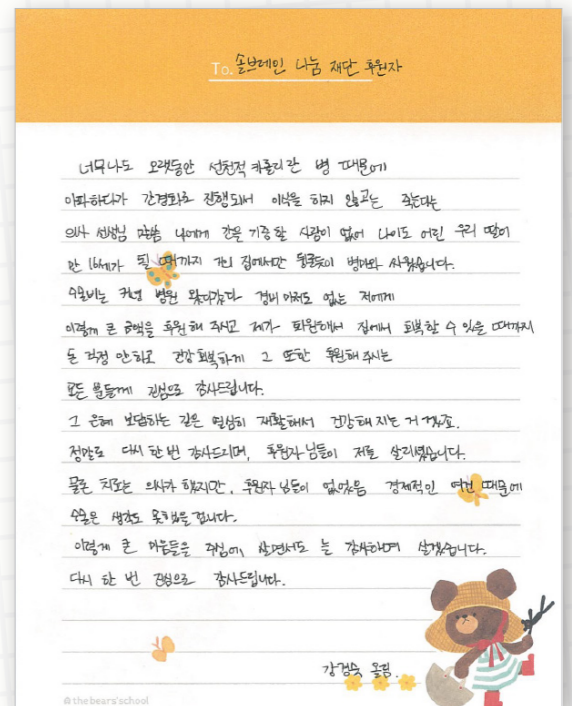 To. 솔브레인 나눔 재단 후원자
너무나도 오랫동안 선천적 카롤리란 병 때문에
아파하다가 간경화로 진행되서 이식을 하지 않고는 죽는다는
의사 선생님 말씀 나에게 간을 기증할 사람이 없어 나이도 어린 우리 딸이
만 16세가 될 때까지 거의 집에서만 병마와 싸웠습니다.
수술비는 커녕 병원 왔다갔다 경비 마저도 없는 저에게
이렇게 큰 금액을 후원해 주시고 제가 퇴원해서 집에서 회복할 수 있을 때까지
돈 걱정 안하고 건강 회복하게 그 또한 후원해 주시는
모든 분들께 진심으로 감사드립니다.
그 은혜 보답하는 길은 열심히 재활해서 건강해 지는 거 겠죠.
정말로 다시 한번 감사드리며, 후원자님들이 저를 살리셨습니다.
물론 치료는 의사가 했지만, 후원자님들이 없었음 경제적인 여건 때문에
수술은 생각도 못했을 겁니다.
이렇게 큰 마음들을 주심에, 살면서도 늘 감사하며 살겠습니다.
다시 한 번 진심으로 감사드립니다.
강경숙 올림.
@the bears' school